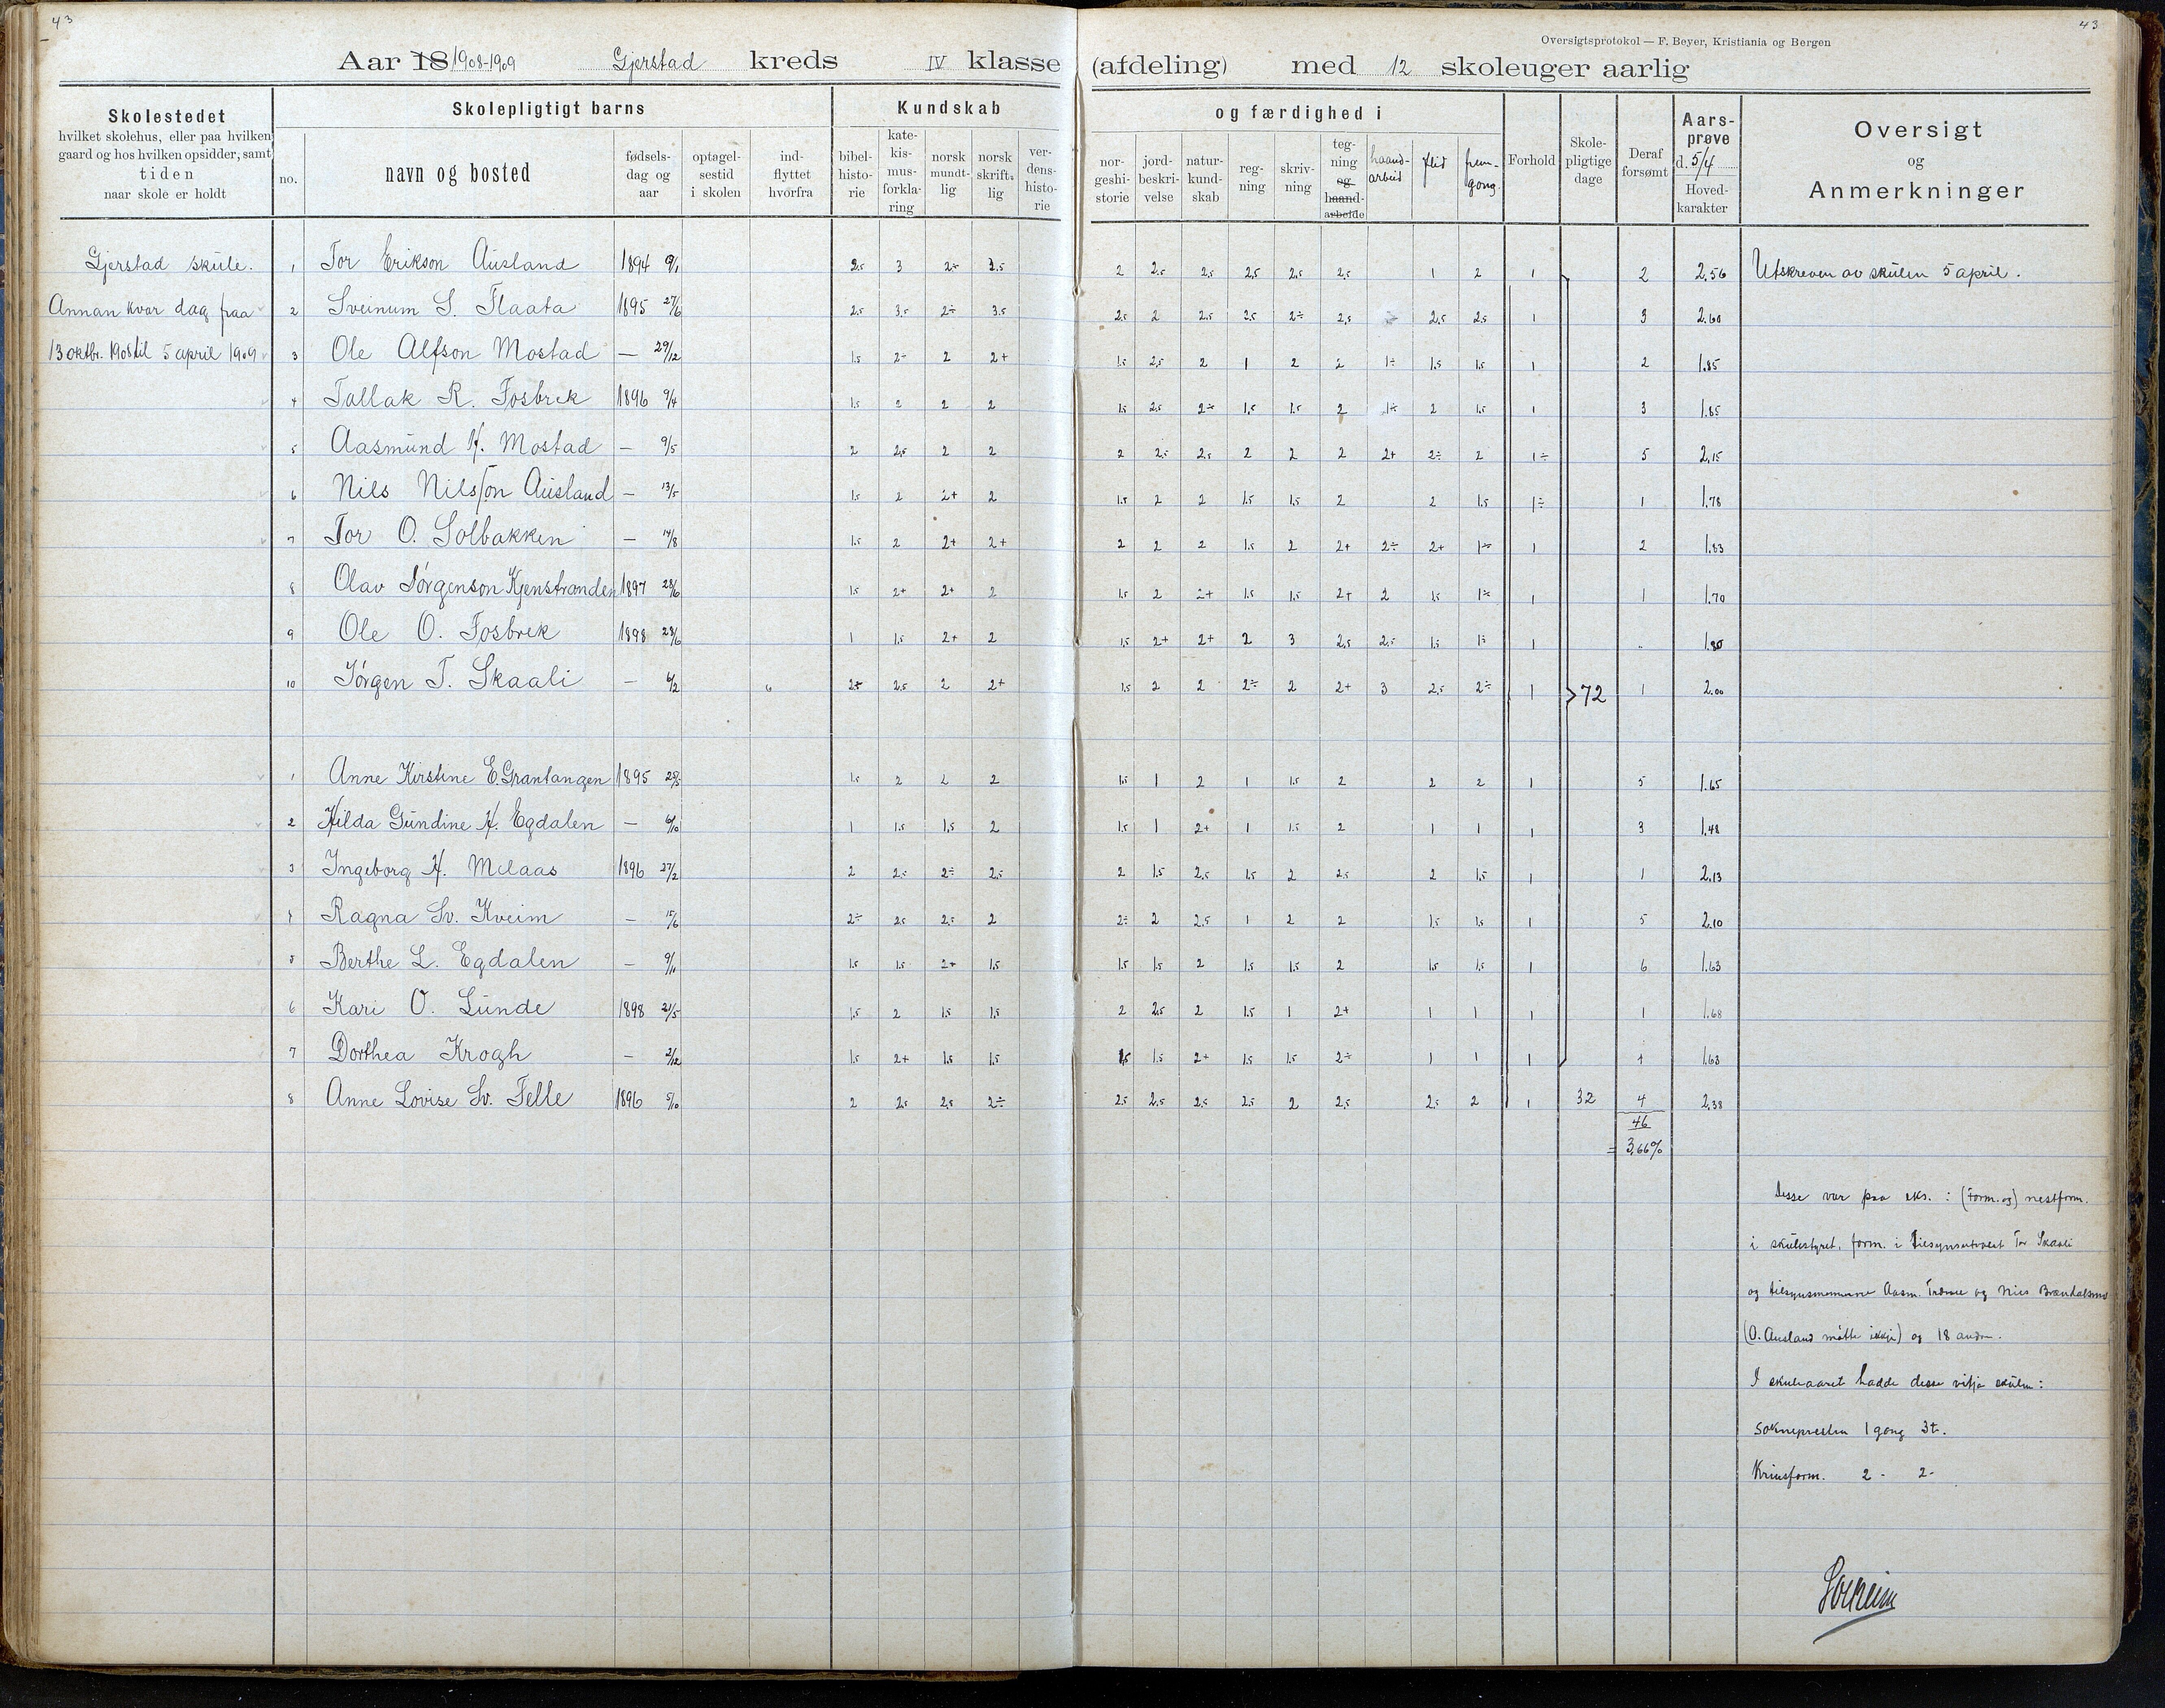 43
43
Oversigtsprotokol — F. Beyer, Kristiania og Bergen
Aar 18 1908-1909 Gjerstad kreds IV klasse (afdeling) med 12 skoleuger aarlig
Skolestedet
hvilket skolehus, eller paa hvilken
gaard og hos hvilken opsidder, samt
tiden
naar skole er holdt
Skolepligtigt barns
no.
navn og bosted
fødsels-
dag og
aar
optagel-
sestid
i skolen
ind-
flyttet
hvorfra
Kundskab
bibel-
histo-
rie
kate-
kis-
mus-
forkla-
ring
norsk
mundt-
lig
norsk
skrift-
lig
ver-
dens-
histo-
rie
og færdighed i
nor-
geshi-
storie
jord-
beskri-
velse
natur-
kund-
skab
reg-
ning
skriv-
ning
teg-
ning
og
haand-
arbeide
haand-
arbeid
flid
frem-
gong
Forhold
Skole-
pligtige
dage
Deraf
forsømt
Aars-
prøve
d. 5/4
Hoved-
karakter
Oversigt
og
Anmerkninger
Gjerstad skule.
Annan kvar dag fraa
13 oktbr. 1908 til 5 april 1909
1 Tor Erikson Ausland 1894 9/1 2,5 3 2÷ 3,5 2 2,5 2,5 2,5 2,5 2,5 1 2 1 2 2,56 Utskreven av skulen 5 april.
2 Sveinum S. Flaata 1895 27/6 2,5 3,5 2÷ 3,5 2,5 2 2,5 2,5 2÷ 2,5 2,5 2,5 1 3 2,60
3 Ole Alfson Mostad — 29/12 1,5 2÷ 2 2+ 1,5 2,5 2 1 2 2 1÷ 1,5 1,5 1 2 1,85
4 Tallak R. Fosbrek 1896 9/4 1,5 2 2 2 1,5 2,5 2÷ 1,5 1,5 2 1÷ 2 1,5 1 3 1,85
5 Aasmund H. Mostad — 9/5 2 2,5 2 2 2 2,5 2,5 2 2 2 2+ 2÷ 2 1÷ 5 2,15
6 Nils Nilsson Ausland — 13/5 1,5 2 2+ 2 1,5 2 2 1,5 1,5 2 2 1,5 1÷ 1 1,78
7 Tor O. Solbakken — 14/8 1,5 2 2+ 2+ 2 2 2 1,5 2 2+ 2÷ 2+ 1÷ 1 2 1,83
8 Olav Jørgenson Kjenstranden 1897 28/6 1,5 2+ 2+ 2 1,5 2 2+ 1,5 1,5 2+ 2 1,5 1÷ 1 1 1,70
9 Ole O. Fosbrek 1898 23/6 1 1,5 2+ 2 1,5 2+ 2+ 2 3 2,5 2,5 1,5 1÷ 1 „ 1,80
10 Jørgen T. Skaali — 6/2 2+ 2,5 2 2+ 1,5 2 2 2÷ 2 2+ 3 2,5 2÷ 1 72 1 2,00
1 Anne Kirstine E. Grantangen 1895 1,5 2 2 2 1,5 1 2 1 1,5 2 2 2 1 5 1,65
2 Hilda Gundine H. Egdalen — 6/10 1 1,5 1,5 2 1,5 1 2+ 1 1,5 2 1 1 1 3 1,48
3 Ingeborg H. Melaas 1896 27/2 2 2,5 2÷ 2,5 2 1,5 2,5 1,5 2 2,5 2 1,5 1 1 2,13
4 Ragna Sv. Kveim — 15/6 2÷ 2,5 2,5 2 2÷ 2 2,5 1 2 2 1,5 1,5 1 5 2,10
5 Berthe L. Egdalen — 9/11 1,5 1,5 2+ 1,5 1,5 1,5 2 1,5 1,5 2 1,5 1,5 1 6 1,63
6 Kari O. Lunde 1898 21/5 1,5 2 1,5 1,5 2 2,5 2 1,5 1 2+ 1 1 1 1 1,68
7 Dorthea Krogh — 2/12 1,5 2+ 1,5 1,5 1,5 1,5 2+ 1,5 1,5 2÷ 1 1 1 1 1,63
8 Anne Lovise Sv. Felle 1896 5/10 2 2,5 2,5 2÷ 2,5 2,5 2,5 2,5 2 2,5 2,5 2 1 32 4 2,38
46
= 3,66%
Desse var paa eks. : (Form. og) nestform.
i skulestyret, form. i tilsynsutvalet Tor Skaali
og tilsynsmennene Aasm. og Nils Brændalsmo
(O. Ausland møtte ikkje) og 18 andre.
I skuleaaret hadde desse vitja skulen:
Soknepresten 1 gong 3 t.
Krinsform. 2 - 2 -
Solheim